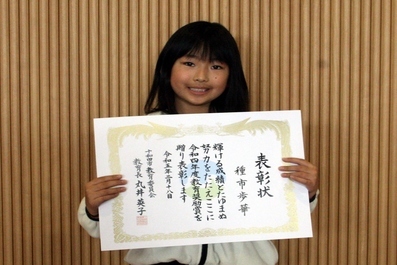 表彰状
種市歩華
輝ける成績とたゆまぬ
努力をたたえここに
令和四年度教育奨励賞を
贈り表彰します
令和五年二月十八日
十和田市教育委員会
教育長 丸井英子